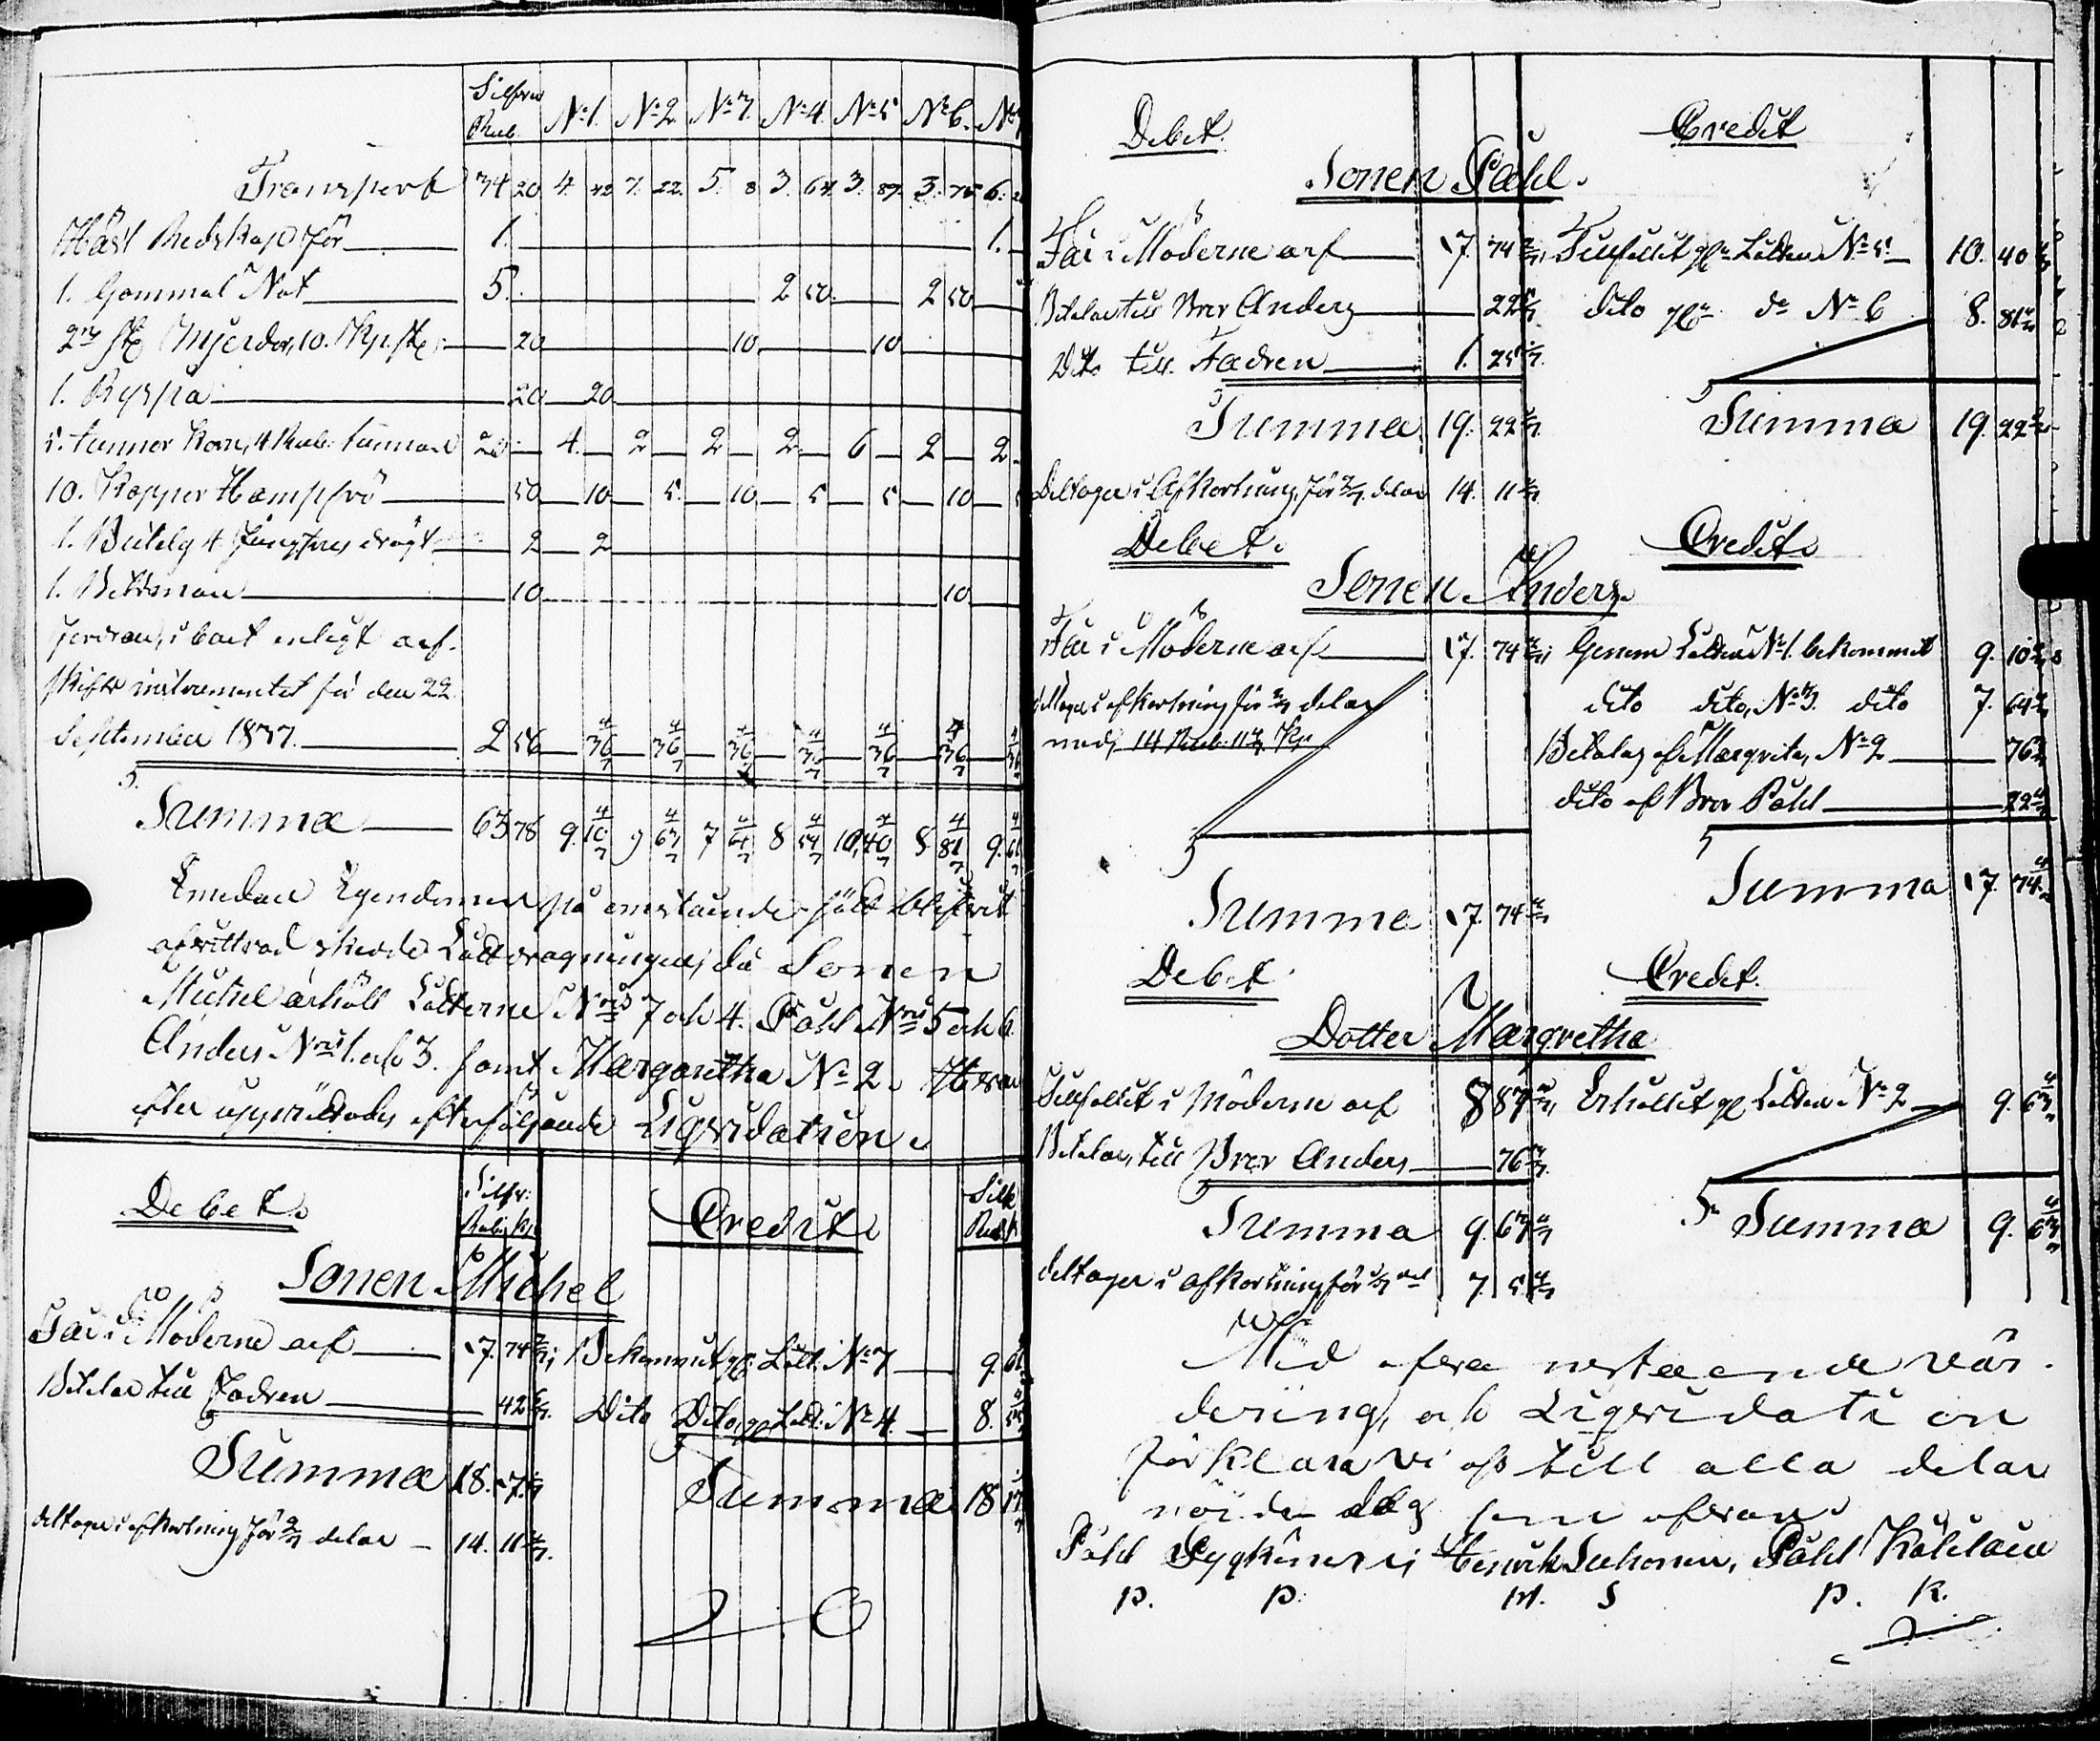 Silfver
Rub. | No 1. | No 2. | No 3. | No 4. | No 5 | No 6. | No
Transport 34 20 4. 42 7. 22. 5. 8 3. 64. 3. 89. 3. 75 6.
Häst Redskap för 1. 1.
1. Gammal Not 5. 2 50 2 50
2ne st Mjerdor, 10. Kp. st 20 10 10
1. Ryssja 20 20
5. tunnor Korn, 4 Rub. tunnan 20 4. 2 2 2 6 2 2
10. Kappor Hampfrö 50 10 5. 10 5 5 10
1. Butelg 2 2
1. Bettsman 10 10
enligt arf-
skifts instrumentet för den 22
September 1837. 2 56 36 4/7 36 4/7 36 4/7 36 4/7 36 4/7 36 4/7
Summa 63 78 9. 10 4/7 9 63 4/7 7 64 4/7 8 54 4/7 10. 40 4/7 8 81 4/7 9. 61
Emedan Egendomen på omstående sätt blifvit
skedde Lottdragningen, då Sonen
Michel ärhöll Lotterne Nris 7 och 4. Påhl Nris 5 och 6
Anders Nris 1. och 3. samt Margaretha No 2. Hvar
efter upprättades efterföljande Liqvidation.
Debet. Silfr. Credit. Silfr
Rub. Kp. Rub.
Sonen Michel
Får i Möderne arf 17. 74 2/7 Bekommit gm Lott. No 7 9. 61
Betalar till Fadren 42 6/7 Dito Dito, gm Lott. No 4. 8. 54
Summa 18. 17 1/7 Summa 18 17
deltager i afkortning för 2/7 delar 14. 11 1/7.
Debet. Credit
Sonen Påhl.
Får i Möderne arf 17. 74 2/7 Tillfallit gm Lotten No 5. 10. 40 4/7
Betalar till Bror Anders 22 4/7 dito gm do No 6 8. 81 4/7
Dito till Fadren 1. 25 1/7
Summa 19. 22 1/7 Summa 19. 22 1/7
Deltager i Afkortning, för 2/7 delar 14. 11 1/7
Debet. Credit.
Sonen Anders
Får i Moderne arf 17. 74 2/7 Genom Lotten No 1. bekommit 9. 10 4/7
deltager i afkortning för 2/7 delar dito dito, No 3. dito 7. 64 4/7
med, 14 Rub. 11 1/7 Kp. Betalas af Margreta, No 2 76
dito af Bror Påhl 22 4/7
Summa 17. 74 2/7 Summa 17. 74
Debet Credit.
Dotter Margretha
Tillfallit i Möderne arf 8 87 1/7 Erhållit gm Lotten No 2 9. 63 4/7
Betalar, till Bror Anders 76 3/7
Summa 9. 63 4/7 Summa 9. 63 4/7
deltager i afkortning för 1/7 del 7. 5 4/7
Med ofvan nestaende vär-
dering, och Liqvidation
förklara vi oss till alla delar
nöjda som ofvan
Påhl Henrik Påhl
P. P. H. S P. K.